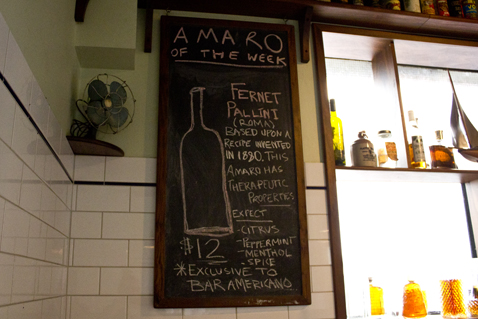 AMARO
OF THE WEEK
FERNET
PALLINI
(ROMA)
BASED UPON A
RECIPE INVENTED
IN 1880, THIS
AMARO HAS
THERAPEUTIC
PROPERTIES
EXPECT
-CITRUS
-PEPPERMINT
-MENTHOL
-SPICE
$12
*EXCLUSIVE TO
BAR AMERICANO